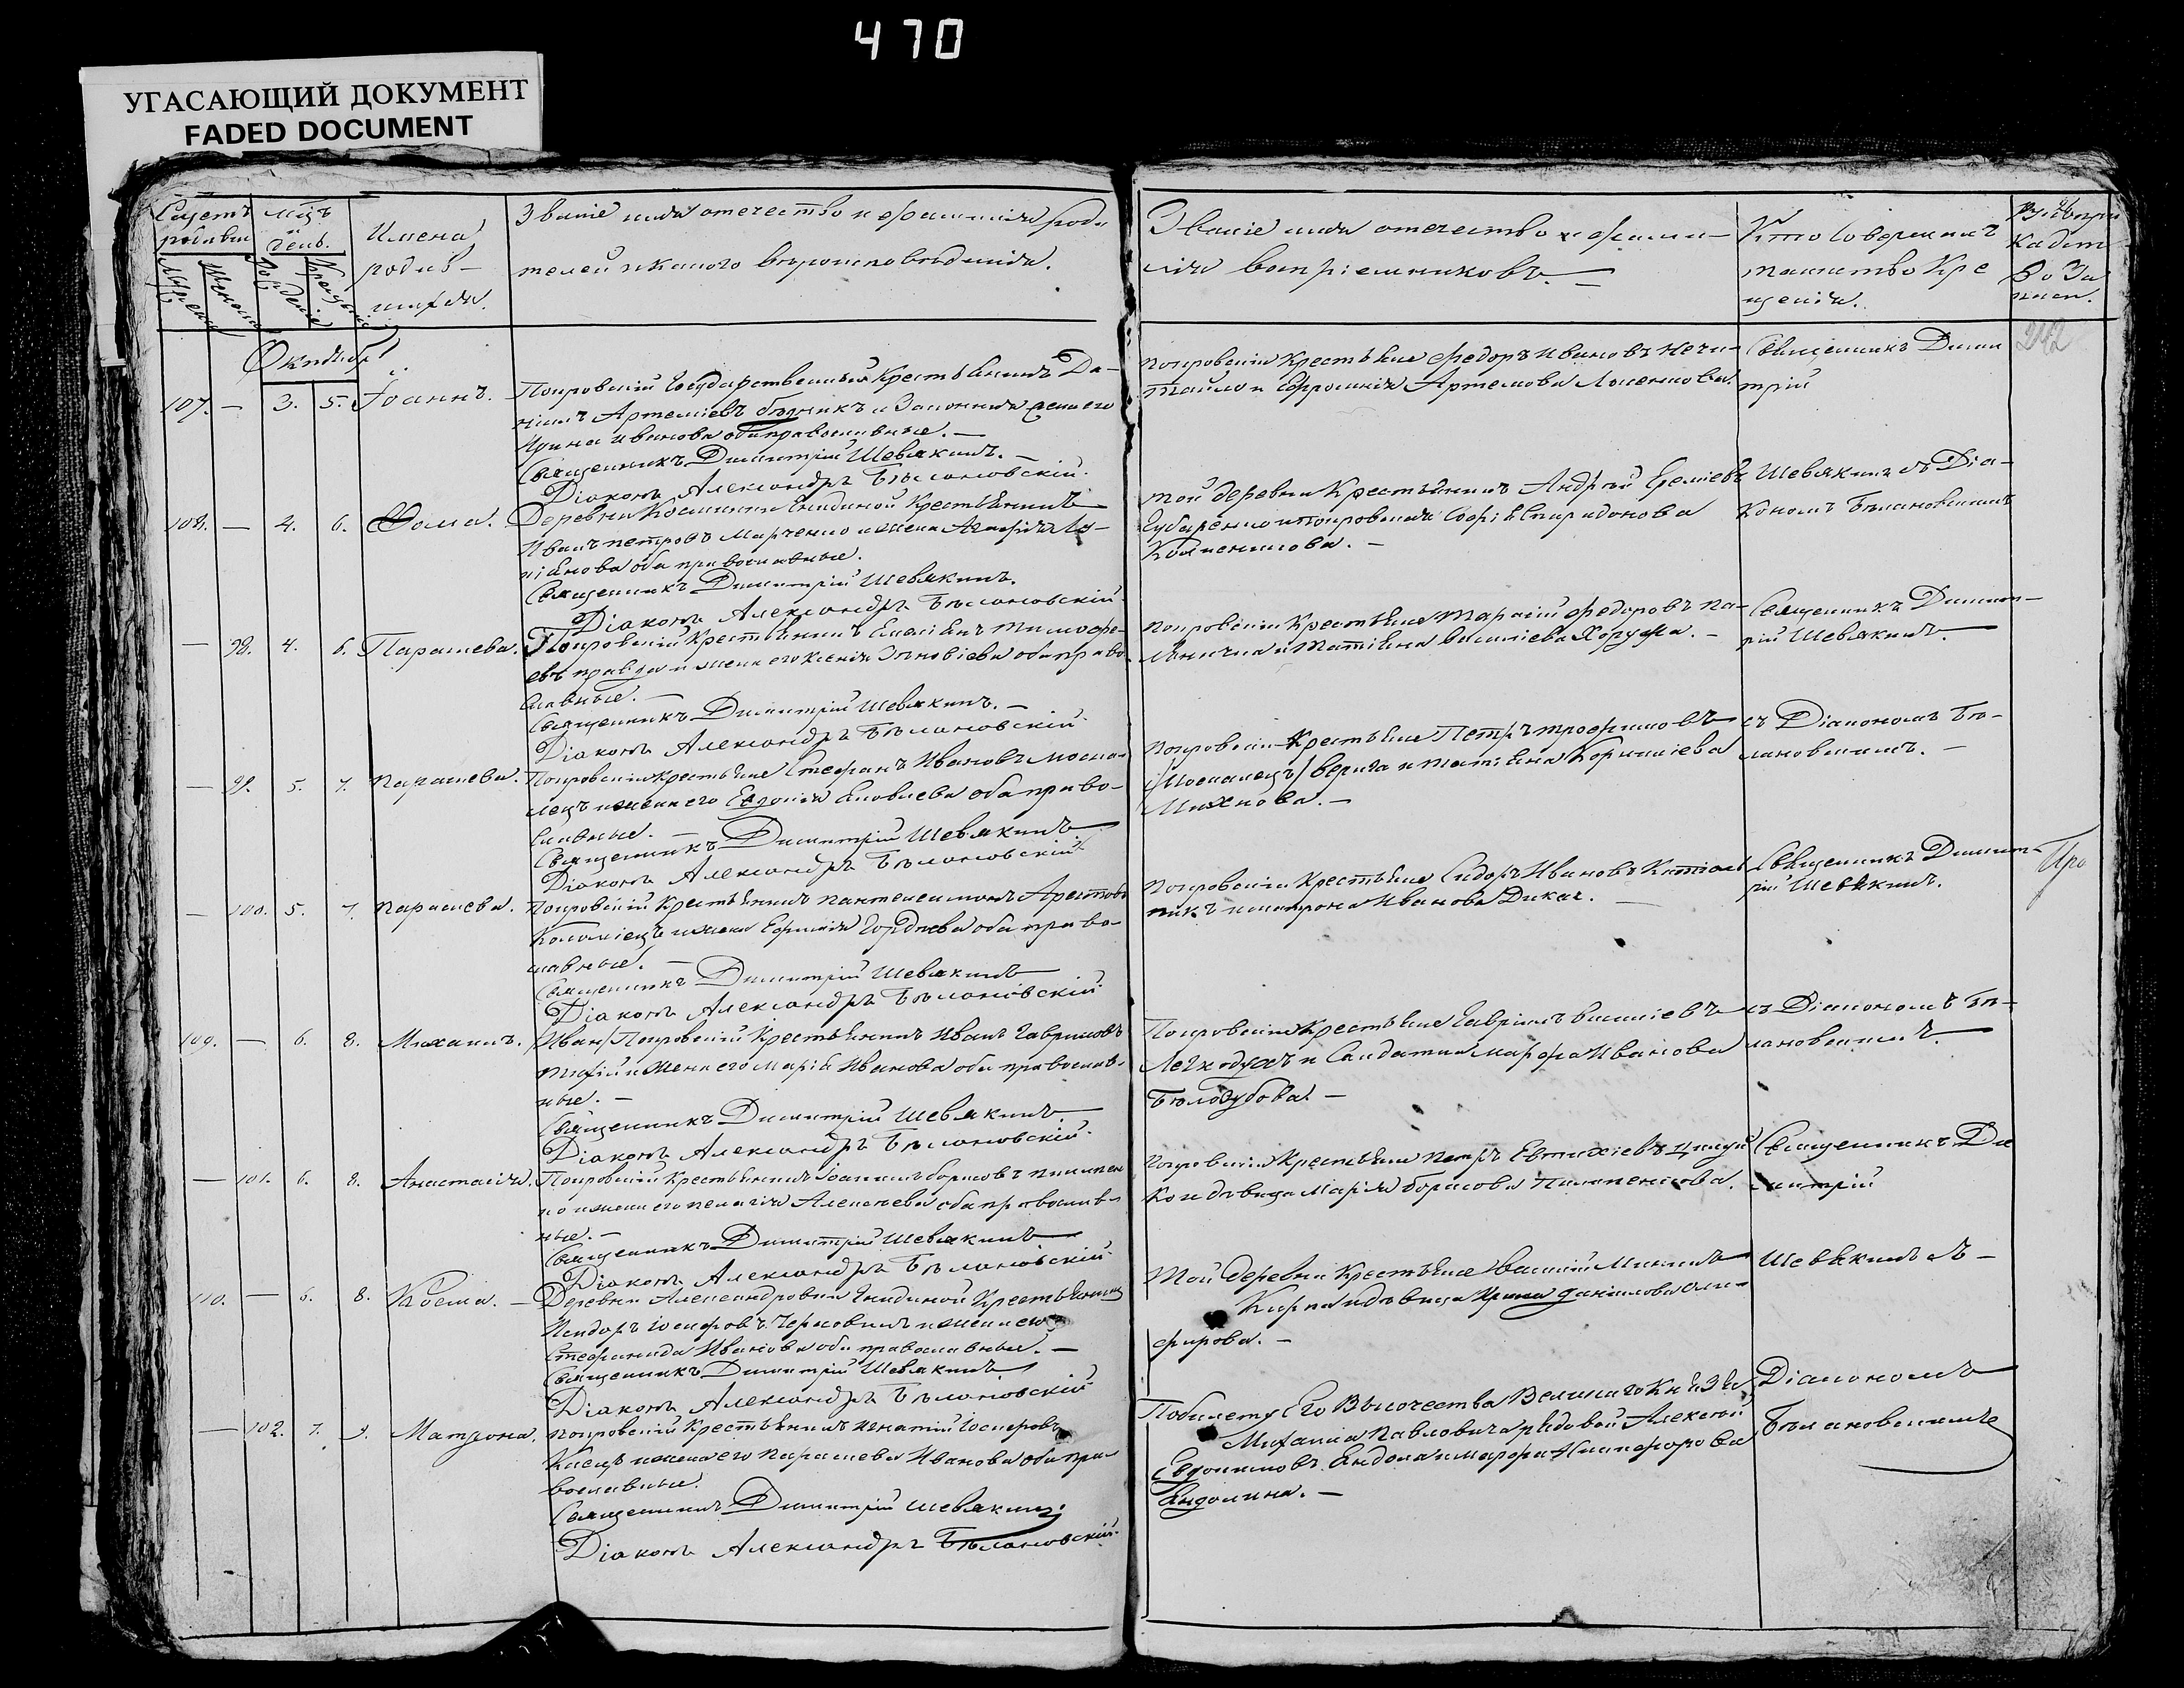 470
УГАСАЮЩИЙ ДОКУМЕНТ
FADED DOCUMENT
Счетъ родившихся
мужеска
женска
мцъ и день.
рожденія
крещенія
Имена родив-
шихся.
Званіе имя отечество и фамилія роди
телей и какого вѣроисповѣданія.
Званіе имя отечество и фами-
лія воспріемниковъ. —
Кто совершалъ
таинство Кре
щенія.
Октябрь
242
107. — 3. 5. Іоаннъ.
Покровскій Государственный Крестьянинъ Да-
ніилъ Артеміевъ бѣдникъ и Законная жена его
Ирина Иванова оба православные. —
Священникъ Димитрій Шевякинъ. —
Діаконъ Александръ Бѣлановскій.
Покровскіи Крестьяне Федоръ Ивановъ Нечи-
тайло и Ефросинія Артемова
Священникъ Дими
трій
108. — 4. 6. Фома.
Деревни Косминки Крестьянинъ
Иванъ Петровъ Марченко и жена Агафія Лу-
кіянова оба православные.
Священникъ Димитрій Шевякинъ.
Діаконъ Александръ Бѣлановскій.
той деревни Крестьянинъ Андрей Ереміевъ
Губаренко и покровская Софія Спиридонова
Шевякинъ съ Діа-
кономъ Бѣлановскимъ
— 98. 4. 6. Параскева.
Покровскій Крестьянинъ Емеліянъ Тимофе-
евъ правда и жена его Ксенія Зѣновіева оба право
славные. —
Священникъ Димитрій Шевякинъ. —
Діаконъ Александръ Бѣлановскій.
Покровскіи Крестьяне Тарасій Федоровъ Па-
ляничка и Татіяна Василіева Хоружа. —
Священникъ Димит-
рій Шевякинъ.
— 99. 5. 7. Параскева.
Покровскіи крестьяне Стефанъ Ивановъ моска-
лецъ и жена его Евдокія Яковлева оба право-
славные. —
Священникъ Димитрій Шевякинъ
Діаконъ Александръ Бѣлановскій.
Покровскіи Крестьяне Петръ трофимовъ
(Москалецъ) верига и татіяна Корниліева
Михнова. —
съ Діакономъ Бѣ-
лановскимъ. —
— 100. 5. 7. Параскева.
Покровскій Крестьянинъ пантелеимонъ
Коломіецъ и жена Ефимія Гордѣева оба право-
славные. —
Священникъ Димитрій Шевякинъ
Діаконъ Александръ Бѣлановскій.
Покровскіи Крестьяне Сидоръ Ивановъ
и матрона Иванова Дикая. —
Священникъ Димит-
рій Шевякинъ.
109. — 6. 8. Михаилъ.
Покровскій Крестьянинъ Иванъ Гавриловъ
и жена его Марія Иванова оба православ-
ные. —
Священникъ Димитрій Шевякинъ
Діаконъ Александръ Бѣлановскій.
Покровскіи Крестьяне Гавріилъ Василіевъ
Легкодухъ и Салдатка Марфа Иванова
Бѣлозубова. —
съ Діакономъ Бѣ-
лановскимъ.
— 101. 6. 8. Анастасія.
Покровскій Крестьянинъ Іоаннъ борисовъ пилипен
ко и жена его пелагія Алексѣева оба православ-
ные. —
Священникъ Димитрій Шевякинъ
Діаконъ Александръ Бѣлановскій.
Покровскіи Крестьяне Петръ Евтихіевъ
ко и дѣвица Марія борисова Пилипенкова.
Священникъ Ди
митрій
110. — 6. 8. Косма. —
Деревни Александровки Крестьянинъ
іосифовъ и жена его
Стефанида Иванова оба православные. —
Священникъ Димитрій Шевякинъ
Діаконъ Александръ Бѣлановскій
Той деревни Крестьяне Василій Мининъ
и дѣвица Ирина данилова Оли-
фирова. —
Шевякинъ съ —
— 102. 7. 9. Матрона.
Покровскій Крестьянинъ игнатій Іосифовъ
и жена его Параскева Иванова оба пра
вославные.
Священникъ Димитрій Шевякинъ
Діаконъ Александръ Бѣлановскій.
По билету Его Высочества Великаго Князя
Михаила Павловича рядовой Алексѣй
Евдокимовъ и марфа Никифорова
Діакономъ
Бѣлановскимъ